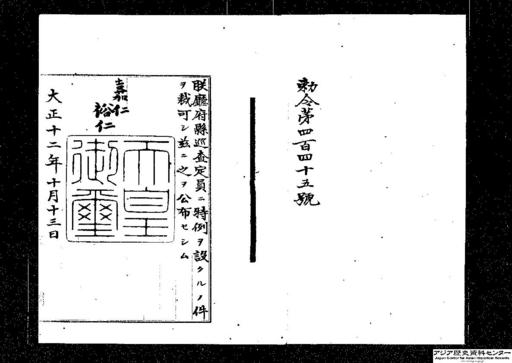 勅令第四百四十五號
朕廳府縣巡査定員ニ特例ヲ設クルノ件
ヲ裁可シ茲ニ之ヲ公布セシム
嘉仁
裕仁
天皇
御璽
大正十二年十月十三日
アジア歴史資料センター
Japan Center for Asian Historical Records